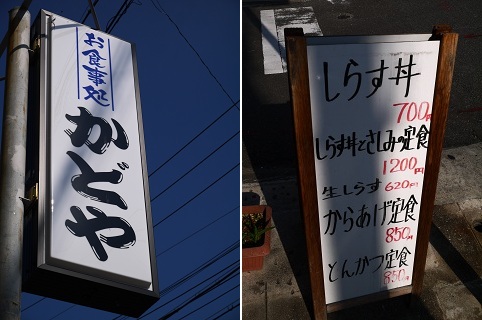 お食事処
かどや
しらす丼
700円
しらす丼とさしみの定食
1200円
生しらす 620円
からあげ定食
850円
とんかつ定食
850円